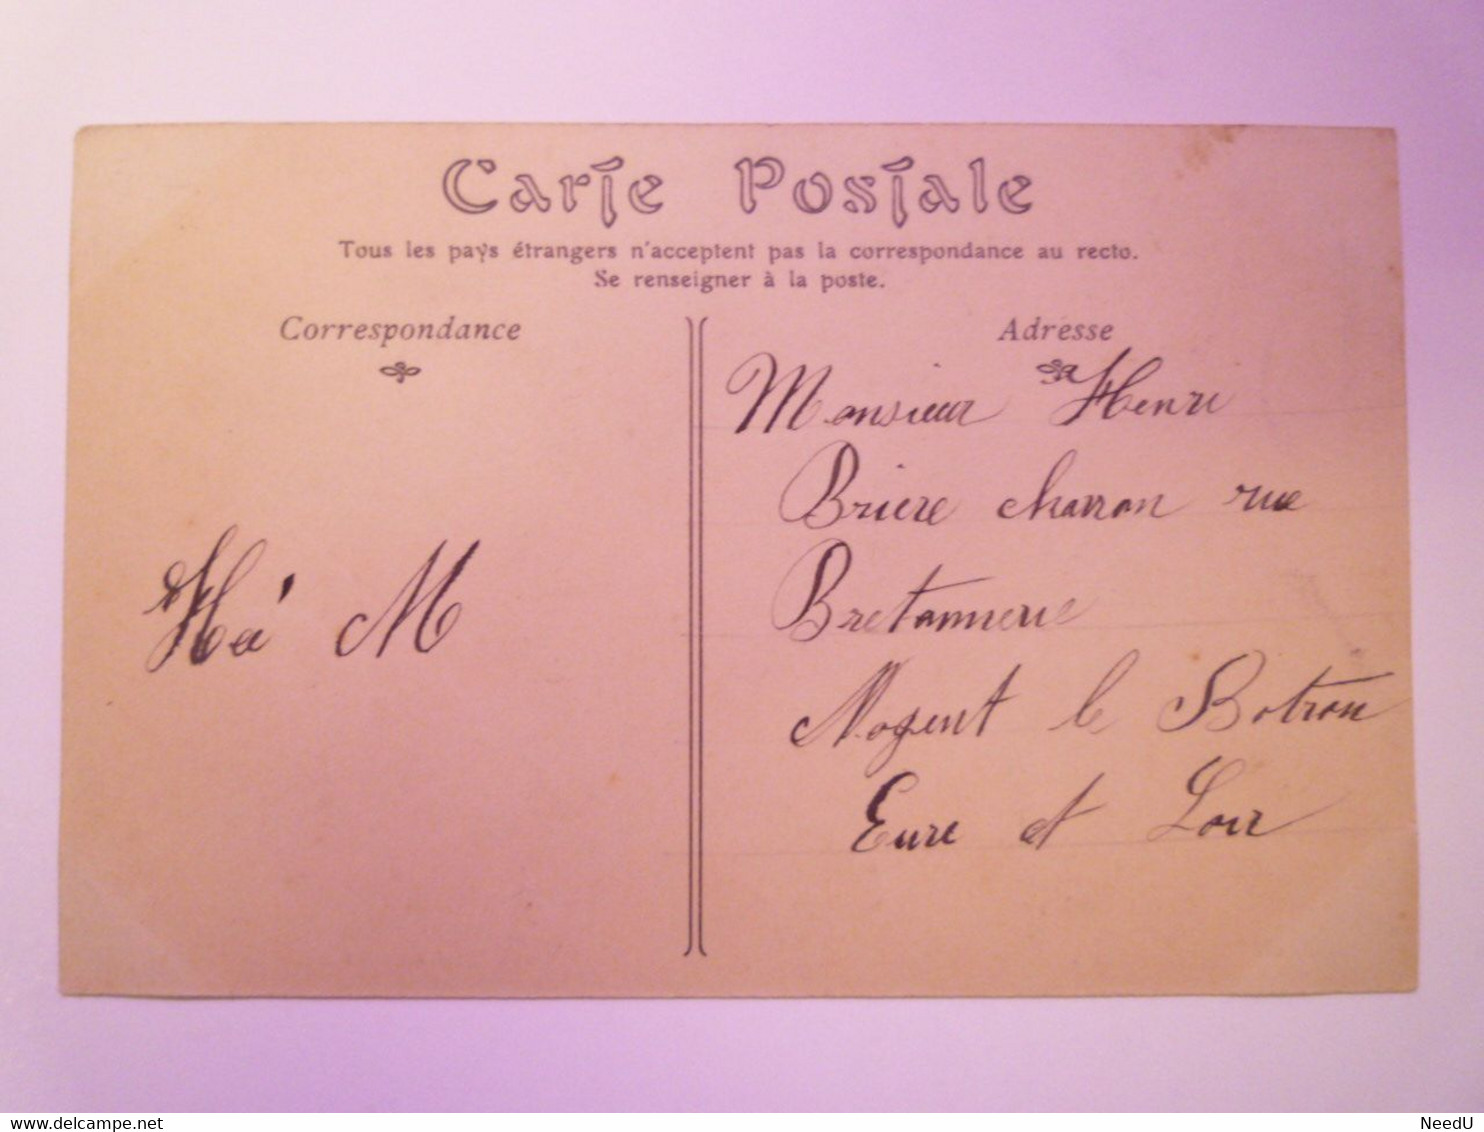 Carte Postale
Tous les pays étrangers n'acceptent pas la correspondance au recto.
Se renseigner à la poste.
Correspondance
M
Adresse
Monsieur Henri
Briere charron rue
Bretonnerie
Nogent le Rotrou
Eure et Loir
NeedU